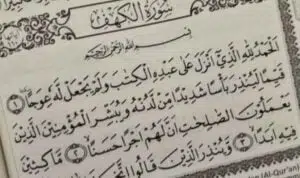 سُورَةُ الْكَهْفِ
بِسْمِ اللَّهِ الرَّحْمَٰنِ الرَّحِيمِ
الْحَمْدُ لِلَّهِ الَّذِي أَنْزَلَ عَلَىٰ عَبْدِهِ الْكِتَٰبَ وَلَمْ يَجْعَلْ لَهُ عِوَجًا ١
قَيِّمًا لِيُنْذِرَ بَأْسًا شَدِيدًا مِنْ لَدُنْهُ وَيُبَشِّرَ الْمُؤْمِنِينَ الَّذِينَ
يَعْمَلُونَ الصَّٰلِحَٰتِ أَنَّ لَهُمْ أَجْرًا حَسَنًا ٢ مَّاكِثِينَ
فِيهِ أَبَدًا ٣ وَيُنْذِرَ الَّذِينَ قَالُوا اتَّخَذَ
(Al-Qur'an)